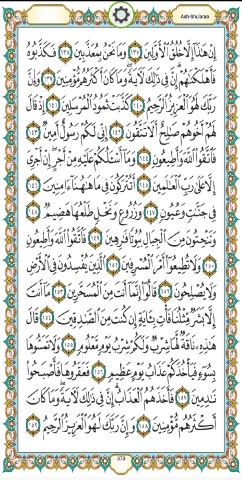 Ash-Shu'araa
إِنْ هَٰذَا إِلَّا خُلُقُ الْأَوَّلِينَ ١٣٧ وَمَا نَحْنُ بِمُعَذَّبِينَ ١٣٨ فَكَذَّبُوهُ
فَأَهْلَكْنَاهُمْ إِنَّ فِي ذَٰلِكَ لَآيَةً وَمَا كَانَ أَكْثَرُهُم مُّؤْمِنِينَ ١٣٩ وَإِنَّ
رَبَّكَ لَهُوَ الْعَزِيزُ الرَّحِيمُ ١٤٠ كَذَّبَتْ ثَمُودُ الْمُرْسَلِينَ ١٤١ إِذْ قَالَ
لَهُمْ أَخُوهُمْ صَالِحٌ أَلَا تَتَّقُونَ ١٤٢ إِنِّي لَكُمْ رَسُولٌ أَمِينٌ ١٤٣
فَاتَّقُوا اللَّهَ وَأَطِيعُونِ ١٤٤ وَمَا أَسْأَلُكُمْ عَلَيْهِ مِنْ أَجْرٍ إِنْ أَجْرِيَ
إِلَّا عَلَىٰ رَبِّ الْعَالَمِينَ ١٤٥ أَتُتْرَكُونَ فِي مَا هَاهُنَا آمِنِينَ ١٤٦
فِي جَنَّاتٍ وَعُيُونٍ ١٤٧ وَزُرُوعٍ وَنَخْلٍ طَلْعُهَا هَضِيمٌ ١٤٨
وَتَنْحِتُونَ مِنَ الْجِبَالِ بُيُوتًا فَارِهِينَ ١٤٩ فَاتَّقُوا اللَّهَ وَأَطِيعُونِ
١٥٠ وَلَا تُطِيعُوا أَمْرَ الْمُسْرِفِينَ ١٥١ الَّذِينَ يُفْسِدُونَ فِي الْأَرْضِ
وَلَا يُصْلِحُونَ ١٥٢ قَالُوا إِنَّمَا أَنتَ مِنَ الْمُسَحَّرِينَ ١٥٣ مَا أَنتَ
إِلَّا بَشَرٌ مِّثْلُنَا فَأْتِ بِآيَةٍ إِن كُنتَ مِنَ الصَّادِقِينَ ١٥٤ قَالَ
هَٰذِهِ نَاقَةٌ لَّهَا شِرْبٌ وَلَكُمْ شِرْبُ يَوْمٍ مَّعْلُومٍ ١٥٥ وَلَا تَمَسُّوهَا
بِسُوءٍ فَيَأْخُذَكُمْ عَذَابُ يَوْمٍ عَظِيمٍ ١٥٦ فَعَقَرُوهَا فَأَصْبَحُوا
نَادِمِينَ ١٥٧ فَأَخَذَهُمُ الْعَذَابُ إِنَّ فِي ذَٰلِكَ لَآيَةً وَمَا كَانَ
أَكْثَرُهُم مُّؤْمِنِينَ ١٥٨ وَإِنَّ رَبَّكَ لَهُوَ الْعَزِيزُ الرَّحِيمُ ١٥٩
373